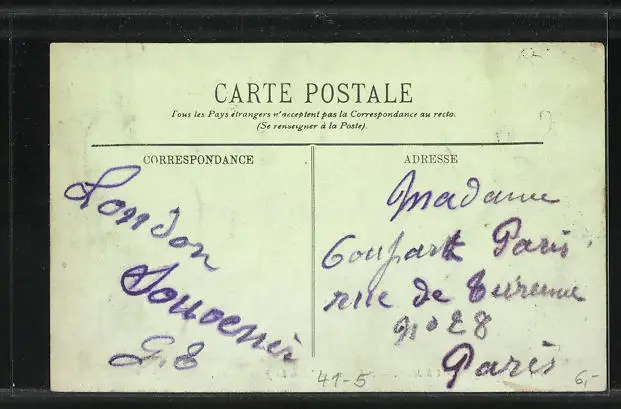 CARTE POSTALE
Tous les Pays étrangers n'acceptent pas la Correspondance au recto.
(Se renseigner à la Poste).
CORRESPONDANCE
London
Souvenir
G. E
ADRESSE
Madame
Paris
rue de Turenne
nº 28
Paris
41-5
6,-